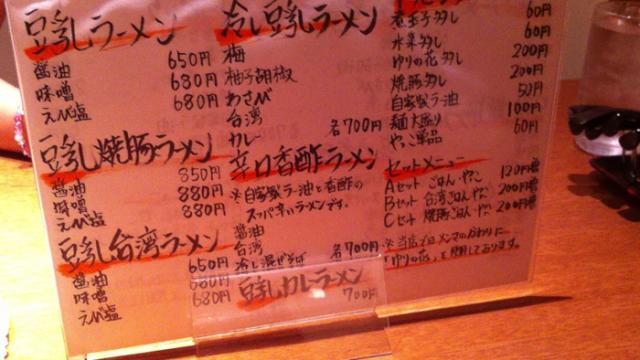 豆乳ラーメン
醤油 650円
味噌 680円
えび塩 680円
豆乳焼豚ラーメン
醤油 850円
味噌 880円
えび塩 880円
豆乳台湾ラーメン
醤油 650円
味噌 680円
えび塩 680円
冷し豆乳ラーメン
梅
柚子胡椒
わさび
台湾
カレー 各700円
辛口香酢ラーメン
※自家製ラー油と香酢の
スッパ辛いラーメンです。
醤油
台湾
冷し混ぜそば 各700円
豆乳カレーラーメン
700円
煮玉子多し 60円
水菜多し 60円
ゆりの花多し 200円
焼豚多し 200円
自家製ラー油 50円
麺大盛り 100円
やっこ単品 60円
セットメニュー
Aセット ごはん・やっこ 120円増
Bセット 台湾ごはん・やっこ 200円増
Cセット 焼豚ごはん・やっこ 200円増
※当店ではメンマのかわりに
「ゆりの花」を使用しております。